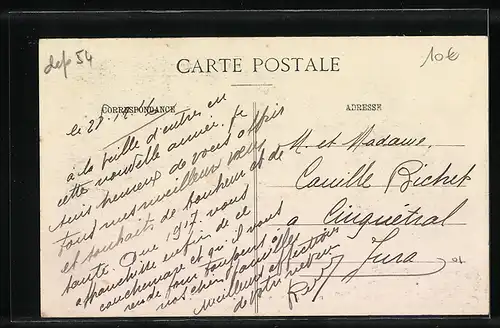 dep 54
10€
CARTE POSTALE
CORRESPONDANCE
ADRESSE
le 23.12.16
a la veille d'entrer en
cette nouvelle année. Je
suis heureux de vous offrir
tous mes meilleurs vœux
et souhaits de bonheur et de
santé. Que 1917 vous
affranchisse enfin de ce
cauchemar et qu'il vous
rende pour toujours à
vos chères familles
Meilleures affections
de votre neveu
M. et Madame
Camille Bichet
a Cinquétral
Jura